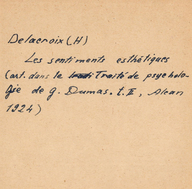 Delacroix (H)
Les sentiments esthétiques
(art. dans le Traité de psycholo-
gie de G. Dumas. t. II, Alcan
1924)